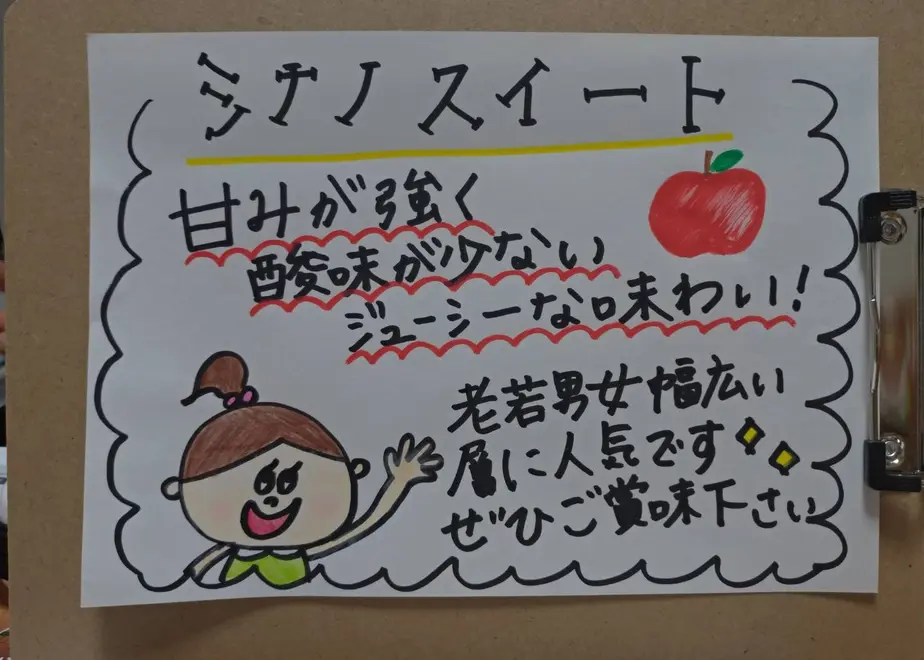 シナノスイート
甘みが強く
酸味が少ない
ジューシーな味わい!
老若男女幅広い
層に人気です
ぜひご賞味下さい